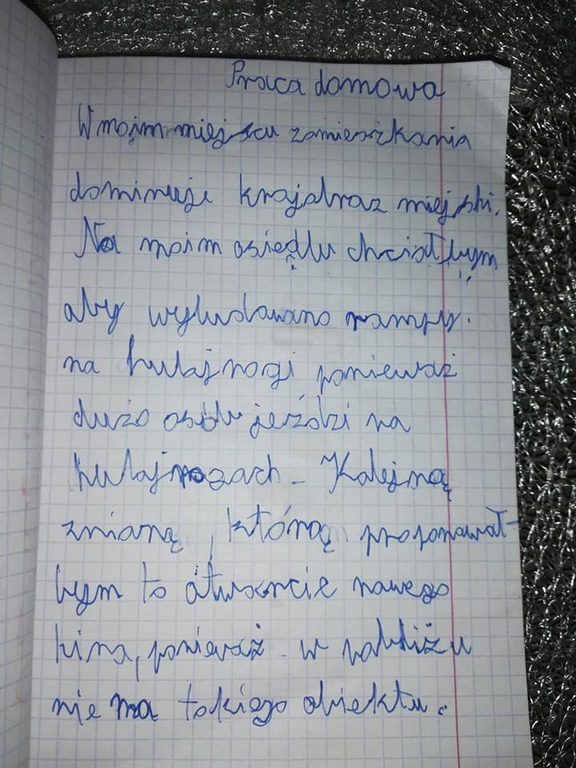 Praca domowa
W moim miejscu zamieszkania
dominuje krajobraz miejski.
Na moim osiedlu chciałbym
aby wybudowano rampy
na hulajnogi ponieważ
dużo osób jeździ na
hulajnogach. Kolejną
zmianą, którą proponował-
bym to otwarcie nowego
kina, ponieważ w pobliżu
nie ma takiego obiektu.